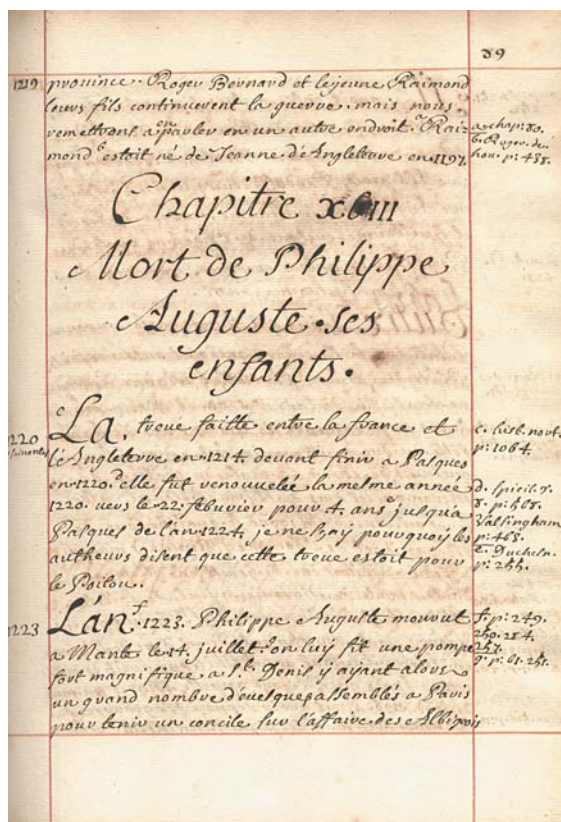 89
1219 province. Roger Bernard et le jeune Raimond
leurs fils continuerent la guerre. mais nous
remettrons a en parler en un autre endroit. a Rai-
mond b estoit né de Jeanne d'Angleterre en 1197.
a. chap: 80.
b. Roger. de
hou. p: 438.
Chapitre xbiii
Mort de Philippe
Auguste. ses
enfants.
1220
c La treve faitte entre la france et
l'Angleterre en 1214. devant finir a Pasques
en 1220. d elle fut renouvelée la mesme année
1220. vers le 22. febvrier pour 4. ans e jusqu'a
Pasques de l'an 1224. je ne sçay pourquoy les
autheurs disent que cette treve estoit pour
le Poitou.
c. hist. nort.
p: 1064.
d. spicil. t.
8. p: 568.
Valsingham
p: 465.
e. Duchesn.
p: 255.
1223
L'an f 1223. Philippe Auguste mourut
a Mante le 14. juillet. g on luy fit une pompe
fort magnifique a St. Denis y ayant alors
un grand nombre d'evesques assemblés a Paris
pour tenir un concile sur l'affaire des Albigois
f. p: 249.
250. 284.
257.
g. p: 61. 251.